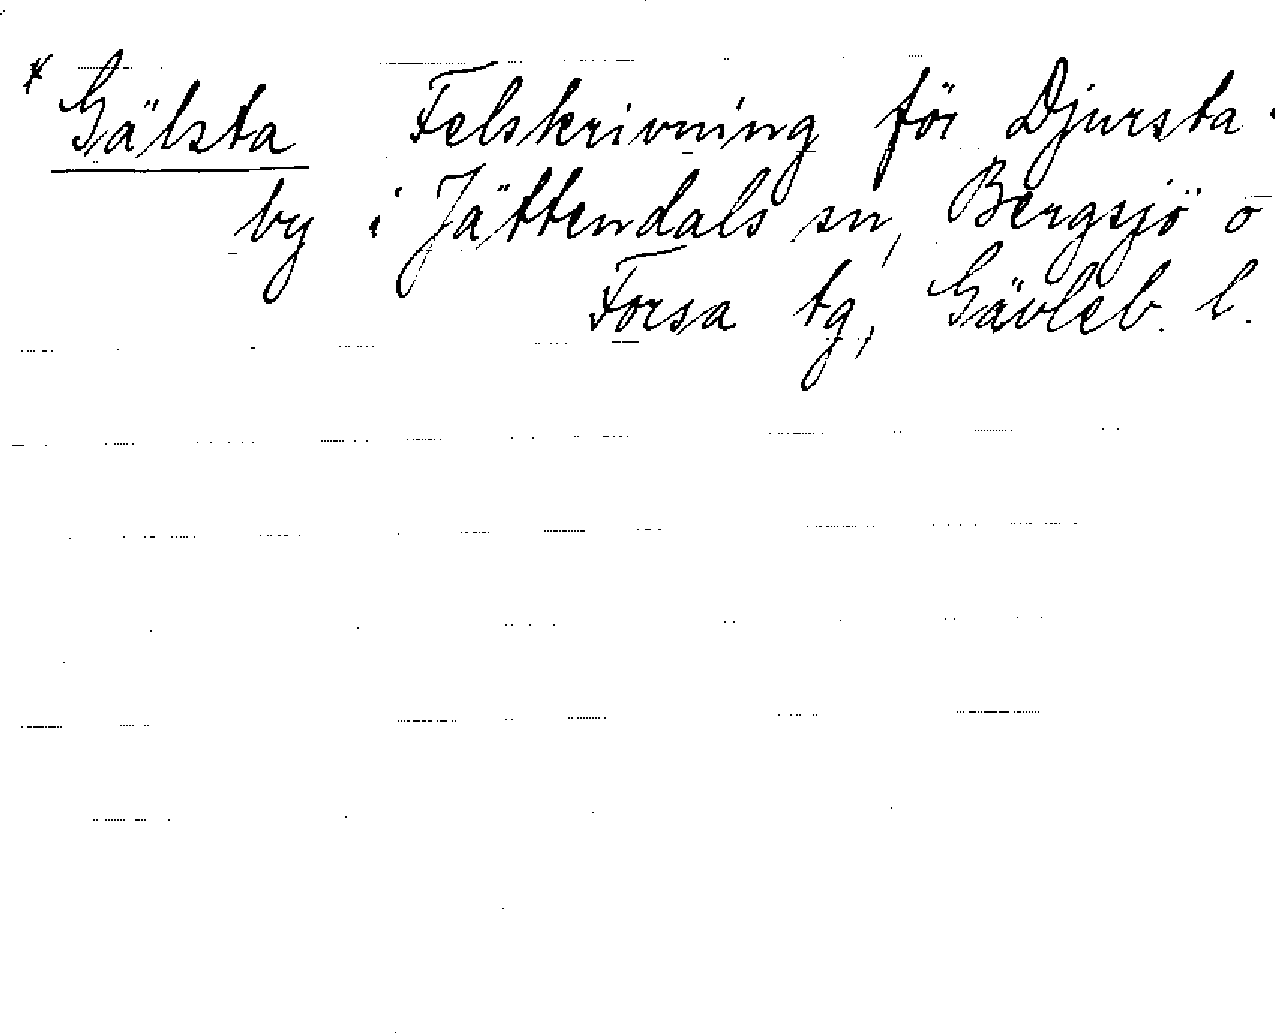 * Gälsta Felskrivning för Djursta.
by i Jättendals sn, Bergsjö o
Forsa tg, Gävleb. l.